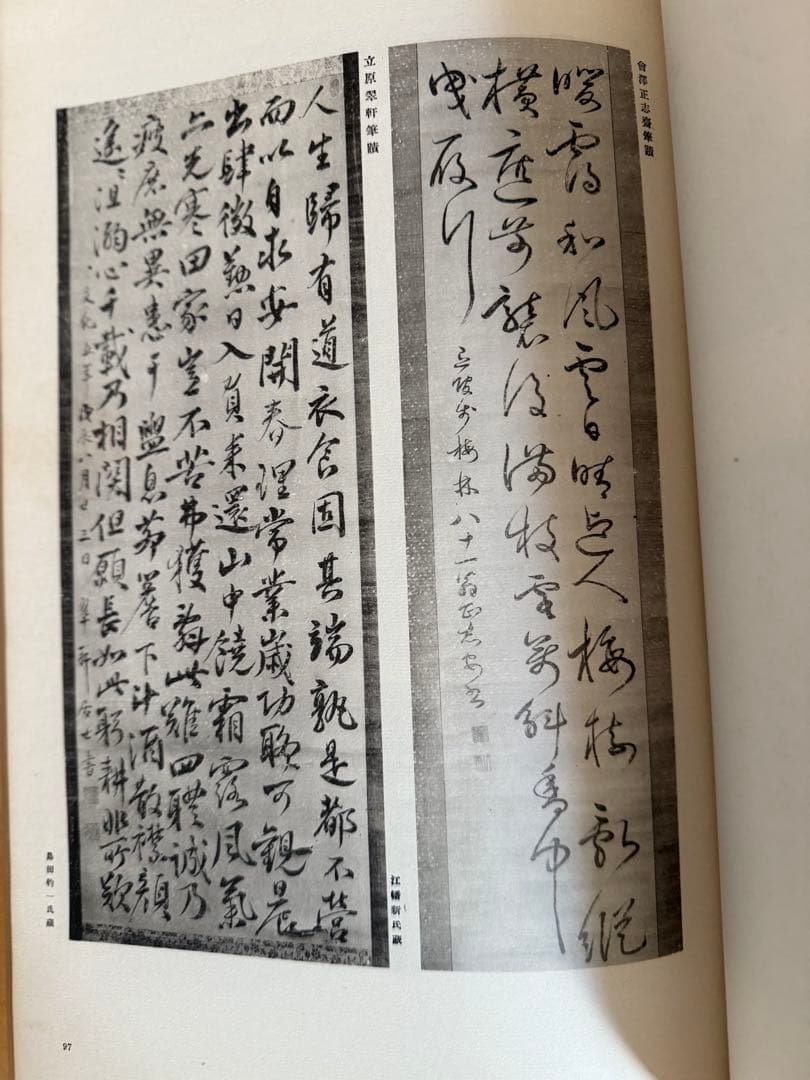 會澤正志齋筆蹟
暖靄和風雲日晴人梅樹影縱
橫步襲滿枝雪萬斛香中
曳履行
步梅林八十一翁正志安書
江幡新氏藏
立原翠軒筆蹟
人生歸有道衣食固其端孰是都不營
而以自求安開春理常業歲功聊可觀晨
出肆微懃日入負耒還山中饒霜露風氣
亦先寒田家豈不苦弗獲辭此難四體誠乃
疲庶無異患干盥息簷下斗酒散襟顏
遙〻沮溺心千載乃相關但願長如此躬耕非所歎
文化五年戊辰八月廿三日翠軒居士書
島田釣一氏藏
97